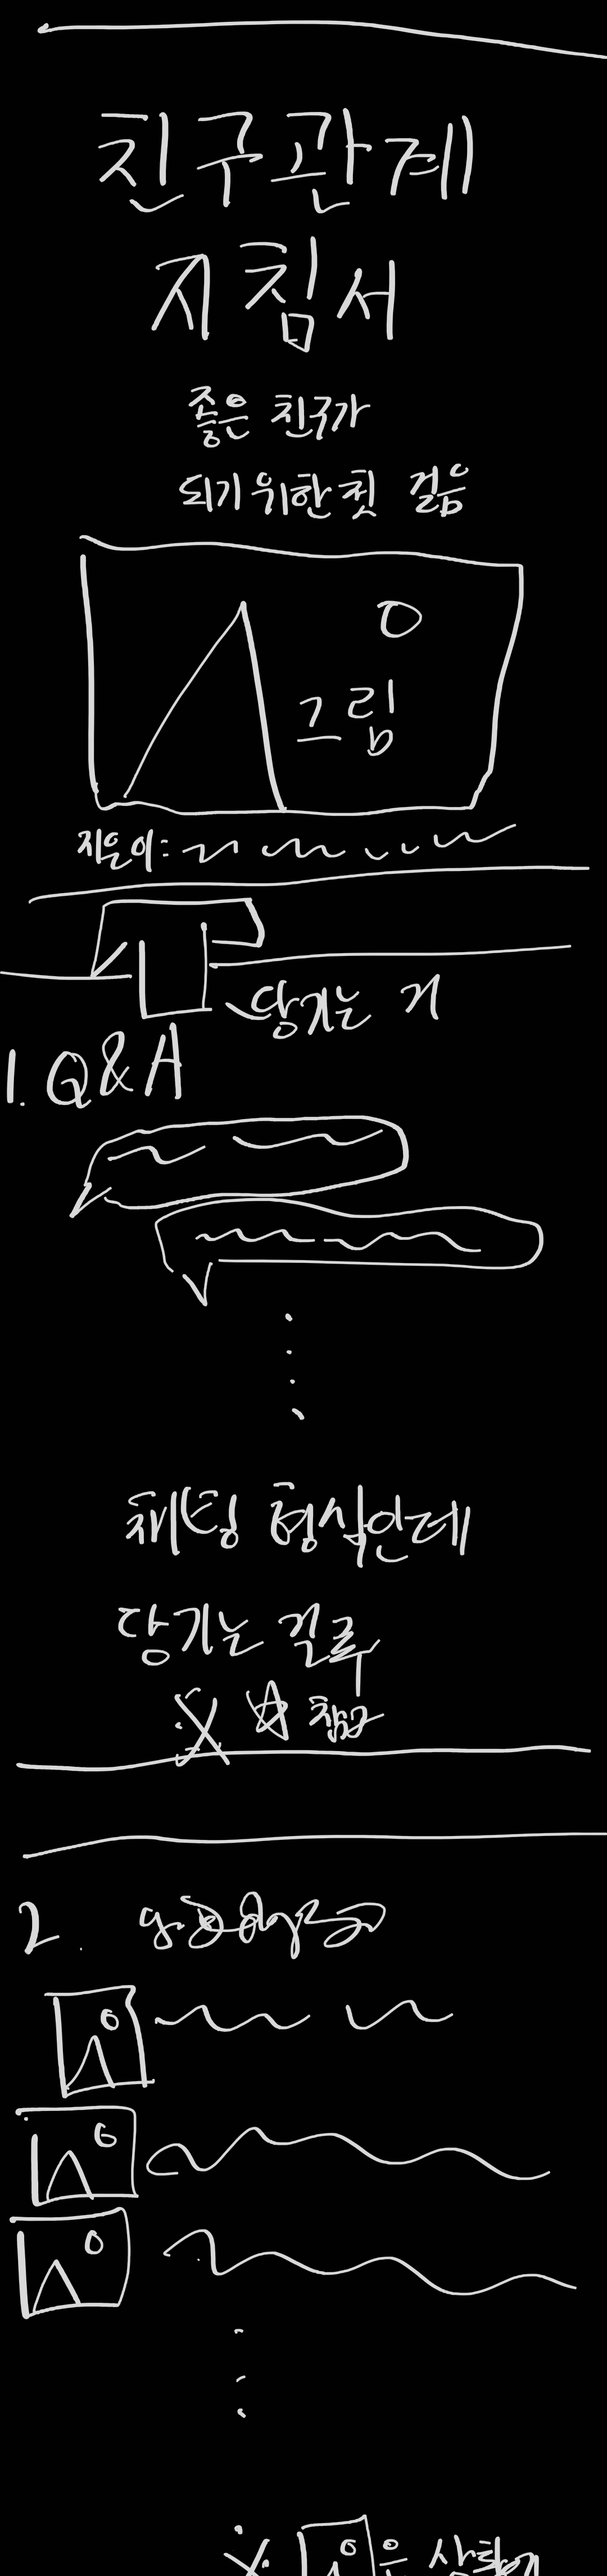 친구관계
지침서
좋은 친구가
되기 위한 첫 걸음
그림
지은이:
당기는 거
1. Q&A
채팅 형식인데
당기는 걸루
※ ☆ 참고
2.
※ 은